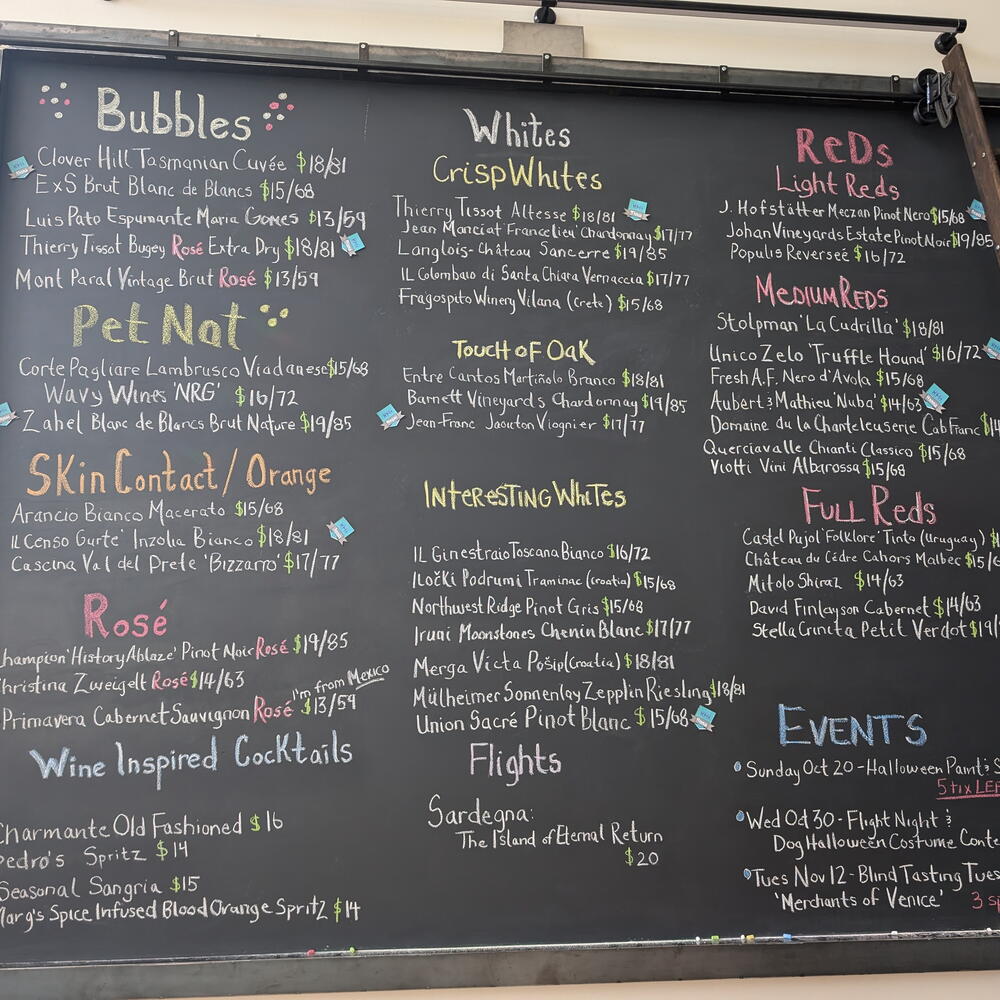 Bubbles
Clover Hill Tasmanian Cuvée $18/81
ExS Brut Blanc de Blancs $15/68
Luis Pato Espumante Maria Gomes $13/59
Thierry Tissot Bugey Rosé Extra Dry $18/81
Mont Paral Vintage Brut Rosé $13/59
Pet Nat
Corte Pagliare Lambrusco Viadanese $15/68
Wavy Wines 'NRG' $16/72
Zahel Blanc de Blancs Brut Nature $19/85
Skin Contact/Orange
Arancio Bianco Macerato $15/68
IL Censo Gurte' Inzolia Bianco $18/81
Cascina Val del Prete 'Bizzarro' $17/77
Rosé
hampion 'History Ablaze' Pinot Noir Rosé $19/85
hristina Zweigelt Rosé $14/63
I'm from Mexico
Primavera Cabernet Sauvignon Rosé $13/59
Wine Inspired Cocktails
Charmante Old Fashioned $16
Pedro's Spritz $14
Seasonal Sangria $15
Marg's Spice Infused Blood Orange Spritz $14
Whites
Crisp Whites
Thierry Tissot Altesse $18/81
Jean Manciat Franclieu Chardonnay $17/77
Langlois-Château Sancerre $19/85
IL Colombaio di Santa Chiara Vernaccia $17/77
Fragospito Winery Vilana (Crete) $15/68
Touch of Oak
Entre Cantos Martiñolo Branco $18/81
Barnett Vineyards Chardonnay $19/85
Jean-Franc Jacouton Viognier $17/77
Interesting Whites
IL Ginestraio Toscana Bianco $16/72
Iločki Podrumi Traminac (Croatia) $15/68
Northwest Ridge Pinot Gris $15/68
Iruai Moonstones Chenin Blanc $17/77
Merga Victa Pošip (Croatia) $18/81
Mülheimer Sonnenlay Zepplin Riesling $18/81
Union Sacré Pinot Blanc $15/68
Flights
Sardegna:
The Island of Eternal Return
$20
Reds
Light Reds
J. Hofstätter Meczan Pinot Nero $15/68
Johan Vineyards Estate Pinot Noir $19/85
Populis Reverseé $16/72
Medium Reds
Stolpman 'La Cuadrilla' $18/81
Unico Zelo 'Truffle Hound' $16/72
Fresh A.F. Nero d'Avola $15/68
Aubert & Mathieu 'Nuba' $14/63
Domaine du la Chanteleuserie Cab Franc $14
Querciavalle Chianti Classico $15/68
Viotti Vini Albarossa $15/68
Full Reds
Castel Pujol 'Folklore' Tinto (Uruguay) $
Château du Cèdre Cahors Malbec $15/6
Mitolo Shiraz $14/63
David Finlayson Cabernet $14/63
Stella Crinita Petit Verdot $19/
EVENTS
Sunday Oct 20 - Halloween Paint & S
5 tix LEF
Wed Oct 30 - Flight Night &
Dog Halloween Costume Conte
Tues Nov 12 - Blind Tasting Tues
'Merchants of Venice' 3 sp